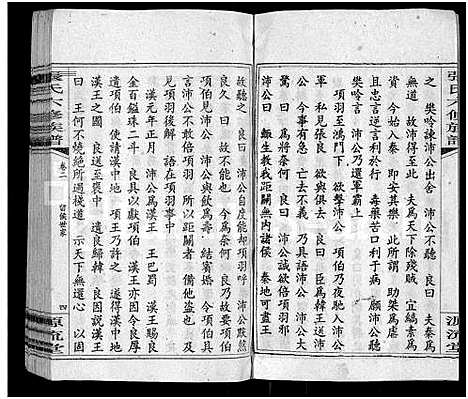 張氏六修族譜
源流堂
之　樊噲諫沛公出舍　沛公不聽　良曰　夫秦爲
無道　故沛公得至此　夫爲天下除殘賊　宜縞素爲
資　今始入秦　即安其樂　此所謂　助桀爲虐
且忠言逆耳利於行　毒藥苦口利於病　願沛公聽
樊噲言　沛公乃還軍霸上
項羽至鴻門下　欲擊沛公　項伯乃夜馳入沛公
軍　私見張良　欲與俱去　良曰　臣爲韓王送沛公
今事有急　亡去不義　乃具語沛公　沛公大
驚曰　爲將奈何　良曰　沛公誠欲倍項羽邪
沛公曰　鯫生教我距關無內諸侯　秦地可盡王
故聽之　良曰　沛公自度能卻項羽乎　沛公默然
良久曰　故不能也　今爲奈何　良乃故要項伯
項伯見沛公　沛公與飲爲壽　結賓婚　令項伯具
言沛公不敢倍項羽　所以距關者　備他盜也　及
見項羽後解　語在項羽事中
漢元年正月　沛公爲漢王　王巴蜀　漢王賜良
金百鎰珠二斗　良具以獻項伯　漢王亦因令良厚
遺項伯　使請漢中地　項王乃許之　遂得漢中地
漢王之國　良送至褒中　遣良歸韓　良因說漢王
曰　王何不燒絕所過棧道　示天下無還心　以固
張氏六修族譜
卷二
留侯世家
四
源流堂